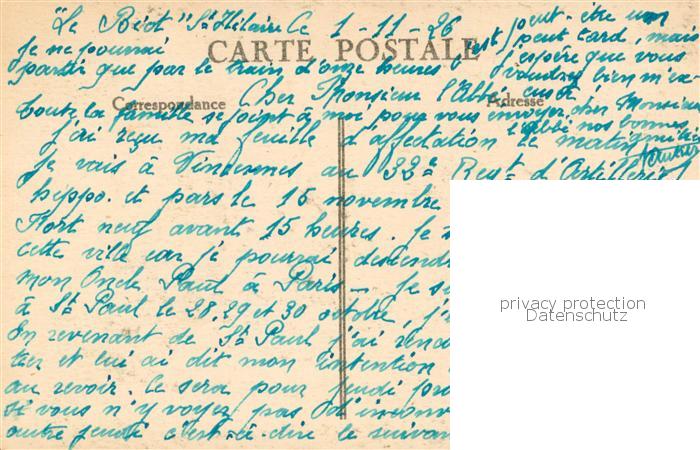 "Le Réot" St Hilaire Ce 1-11-26
CARTE POSTALE
Correspondance
Adresse
Cher Monsieur l'Abbé
j'ai reçu ma feuille d'affectation ce matin
je vais à Vincennes au 32e Regt d'Artillerie
hippo. et pars le 15 novembre
Fort neuf avant 15 heures. Je
cette ville car je pourrai descend
mon Oncle Paul à Paris - Je
à St Paul le 28, 29 et 30 octobre, j'
En revenant de St Paul j'ai
et lui ai dit mon intention
au revoir. Ce sera pour jeudi
si vous n'y voyez pas d'inconv
autre jeudi c'est-à-dire le suivan
Je ne pourrai
partir que par le train d'onze heures c'est
peut-être un
peut tard, mais
j'espère que vous
voudrez bien m'ex
cusé.
toute la famille se joint à moi pour vous envoyer cher Monsieur
l'abbé nos bonnes
amitiés
privacy protection
Datenschutz